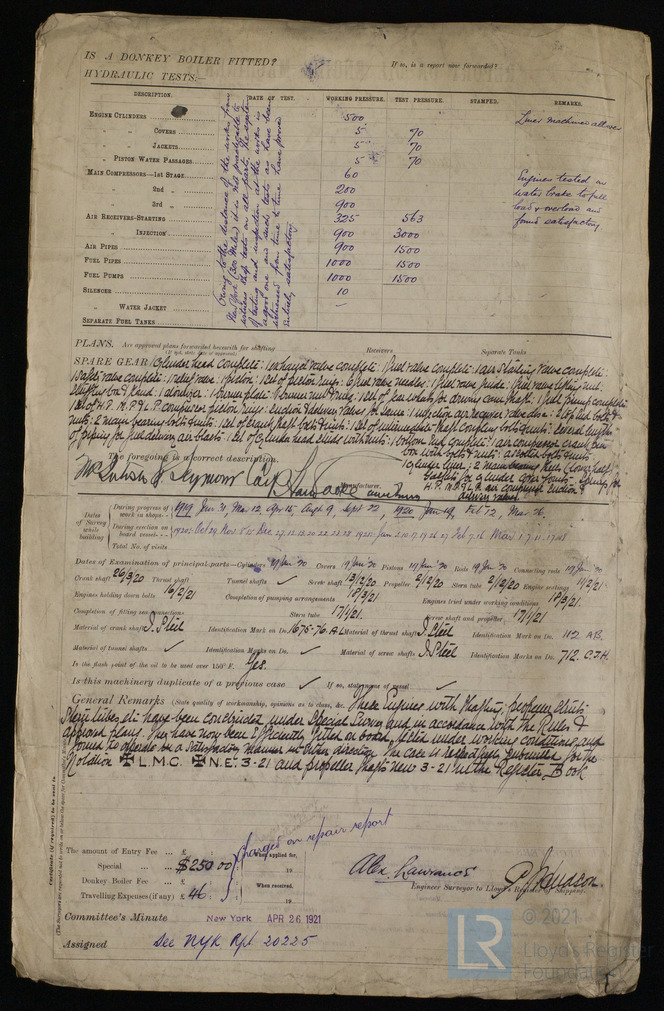 IS A DONKEY BOILER FITTED?
If so, is a report now forwarded?
HYDRAULIC TESTS:—
DESCRIPTION. DATE OF TEST. WORKING PRESSURE. TEST PRESSURE. STAMPED. REMARKS.
ENGINE CYLINDERS 500 Liner machined all over
„ COVERS 5 70
„ JACKETS 5 70
„ PISTON WATER PASSAGES 5 70
MAIN COMPRESSORS—1ST STAGE 60 Engines tested on
„ 2ND „ 200 water brake to full
„ 3RD „ 900 load & overload and
AIR RECEIVERS—STARTING 325 563 found satisfactory
„ INJECTION 900 3000
AIR PIPES 900 1500
FUEL PIPES 1000 1500
FUEL PUMPS 1000 1500
SILENCER 10
„ WATER JACKET —
SEPARATE FUEL TANKS
Owing to the distance of the works from
New York (300 Miles) it is not practicable to
witness these tests on all parts. The system
of testing and inspection at the works is
a good one and such tests as have been
witnessed from time to time have proved
entirely satisfactory
PLANS. Are approved plans forwarded herewith for shafting Receivers Separate Tanks
SPARE GEAR Cylinder head complete: 1 exhaust valve complete: 1 fuel valve complete: 1 air starting valve complete:
1 safety valve complete: 1 relief valve: 1 piston: 1 set of piston rings: 6 fuel valve needles: 1 fuel valve guide:
1 fuel pump complete
1 set of H.P. M.P & L.P. compressor piston rings: suction & delivery valves for same: 1 injection air receiver valve disc:
nuts: 2 main bearing bolts & nuts: 1 set of crank shaft bolts & nuts: 1 set of intermediate shaft coupling bolts & nuts: several lengths
of piping for fuel delivery air blast: 1 set of cylinder head studs with nuts:
The foregoing is a correct description.
McIntosh & Seymour Corp Manufacturer.
Dates of Survey while building
During progress of work in shops-- 1919 Jan 31, Mar 12, Apr 15, Aug 9, Sept 22, 1920 Jan 19, Feb 12, Mar 26
During erection on board vessel---
Total No. of visits
Dates of Examination of principal parts—Cylinders 19 Jan '20 Covers 19 Jan '20 Pistons 19 Jan '20 Rods 19 Jan '20 Connecting rods 19 Jan '20
Crank shaft 26/3/20 Thrust shaft Tunnel shafts ✓ Screw shaft 13/12/20 Propeller 2/12/20 Stern tube 2/12/20 Engine seatings 11/2/21
Engines holding down bolts 16/2/21 Completion of pumping arrangements 18/3/21 Engines tried under working conditions 18/3/21
Completion of fitting sea connections Stern tube 17/1/21 Screw shaft and propeller 17/1/21
Material of crank shaft I. Steel Identification Mark on Do. 1675-76. A.L. Material of thrust shaft I. Steel Identification Mark on Do. 112 A.B.
Material of tunnel shafts ✓ Identification Marks on Do. ✓ Material of screw shafts I. Steel Identification Marks on Do. 712. C.J.H.
Is the flash point of the oil to be used over 150° F. Yes.
Is this machinery duplicate of a previous case ✓ If so, state name of vessel ✓
General Remarks (State quality of workmanship, opinions as to class, &c. These Engines with shafting, propeller shafts
Stern tubes etc have been constructed under Special Survey and in accordance with the Rules &
approved plans. They have now been efficiently fitted on board, tested under working conditions and
found to operate in a satisfactory manner in either direction. The case is respectfully submitted for the
Notation ✠ L.M.C. ✠ N.E. 3-21 and propeller shafts new 3-21 in the Register Book
Certificate (if required) to be sent to
The amount of Entry Fee ... £ : :
Special ... $250.00
Donkey Boiler Fee ... £ : :
Travelling Expenses (if any) £ 46. :
Charged on repair report
When applied for,
19
When received,
19
Alex. Lawrance
Engineer Surveyor to Lloyd's Register of Shipping.
Committee's Minute New York APR 26 1921
Assigned See NYK Rpt. 20225
LR
© 2021
Lloyd's Register
Foundation